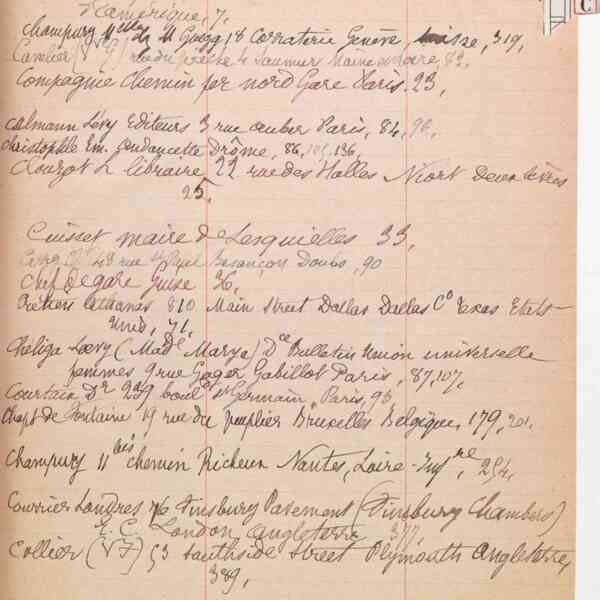 d'amérique, 7,
Champury Melle de M Guegg 18 Corraterie Genève, 319,
Cavelier rue du prêche 4 Saumur Maine et Loire 82,
Compagnie Chemin fer nord Gare Paris. 23,
Calmann Lévy Editeurs 3 rue auber Paris, 84, 96,
Christophle Em. Dr̂ome, 86, 105, 136,
Clouzot L libraire 22 rue des Halles Niort Deux Sèvres
25,
Cuisset maire de Lesquielles 33,
48 rue St Paul Besançon Doubs, 90
Chef de gare Guise 36,
Crétien Athanas 810 Main Street Dallas Dallas Co Texas Etats-
Unis, 71,
Chéliga Loevy (Made Marya) Dce Bulletin Union universelle
femmes 9 rue Gabillot Paris, 87, 107,
Courtain Dr 229 boul St Germain, Paris, 96
de Fontaine 19 rue du peuplier Bruxelles Belgique, 179, 201,
Champury 11 bis chemin Richeux Nantes, Loire-Infre, 254,
Courrier Londres 76 Finsbury Pavement (Finsbury Chambers)
E. C. London angleterre 377,
Collier 53 Southside Street Plymouth angleterre,
389,